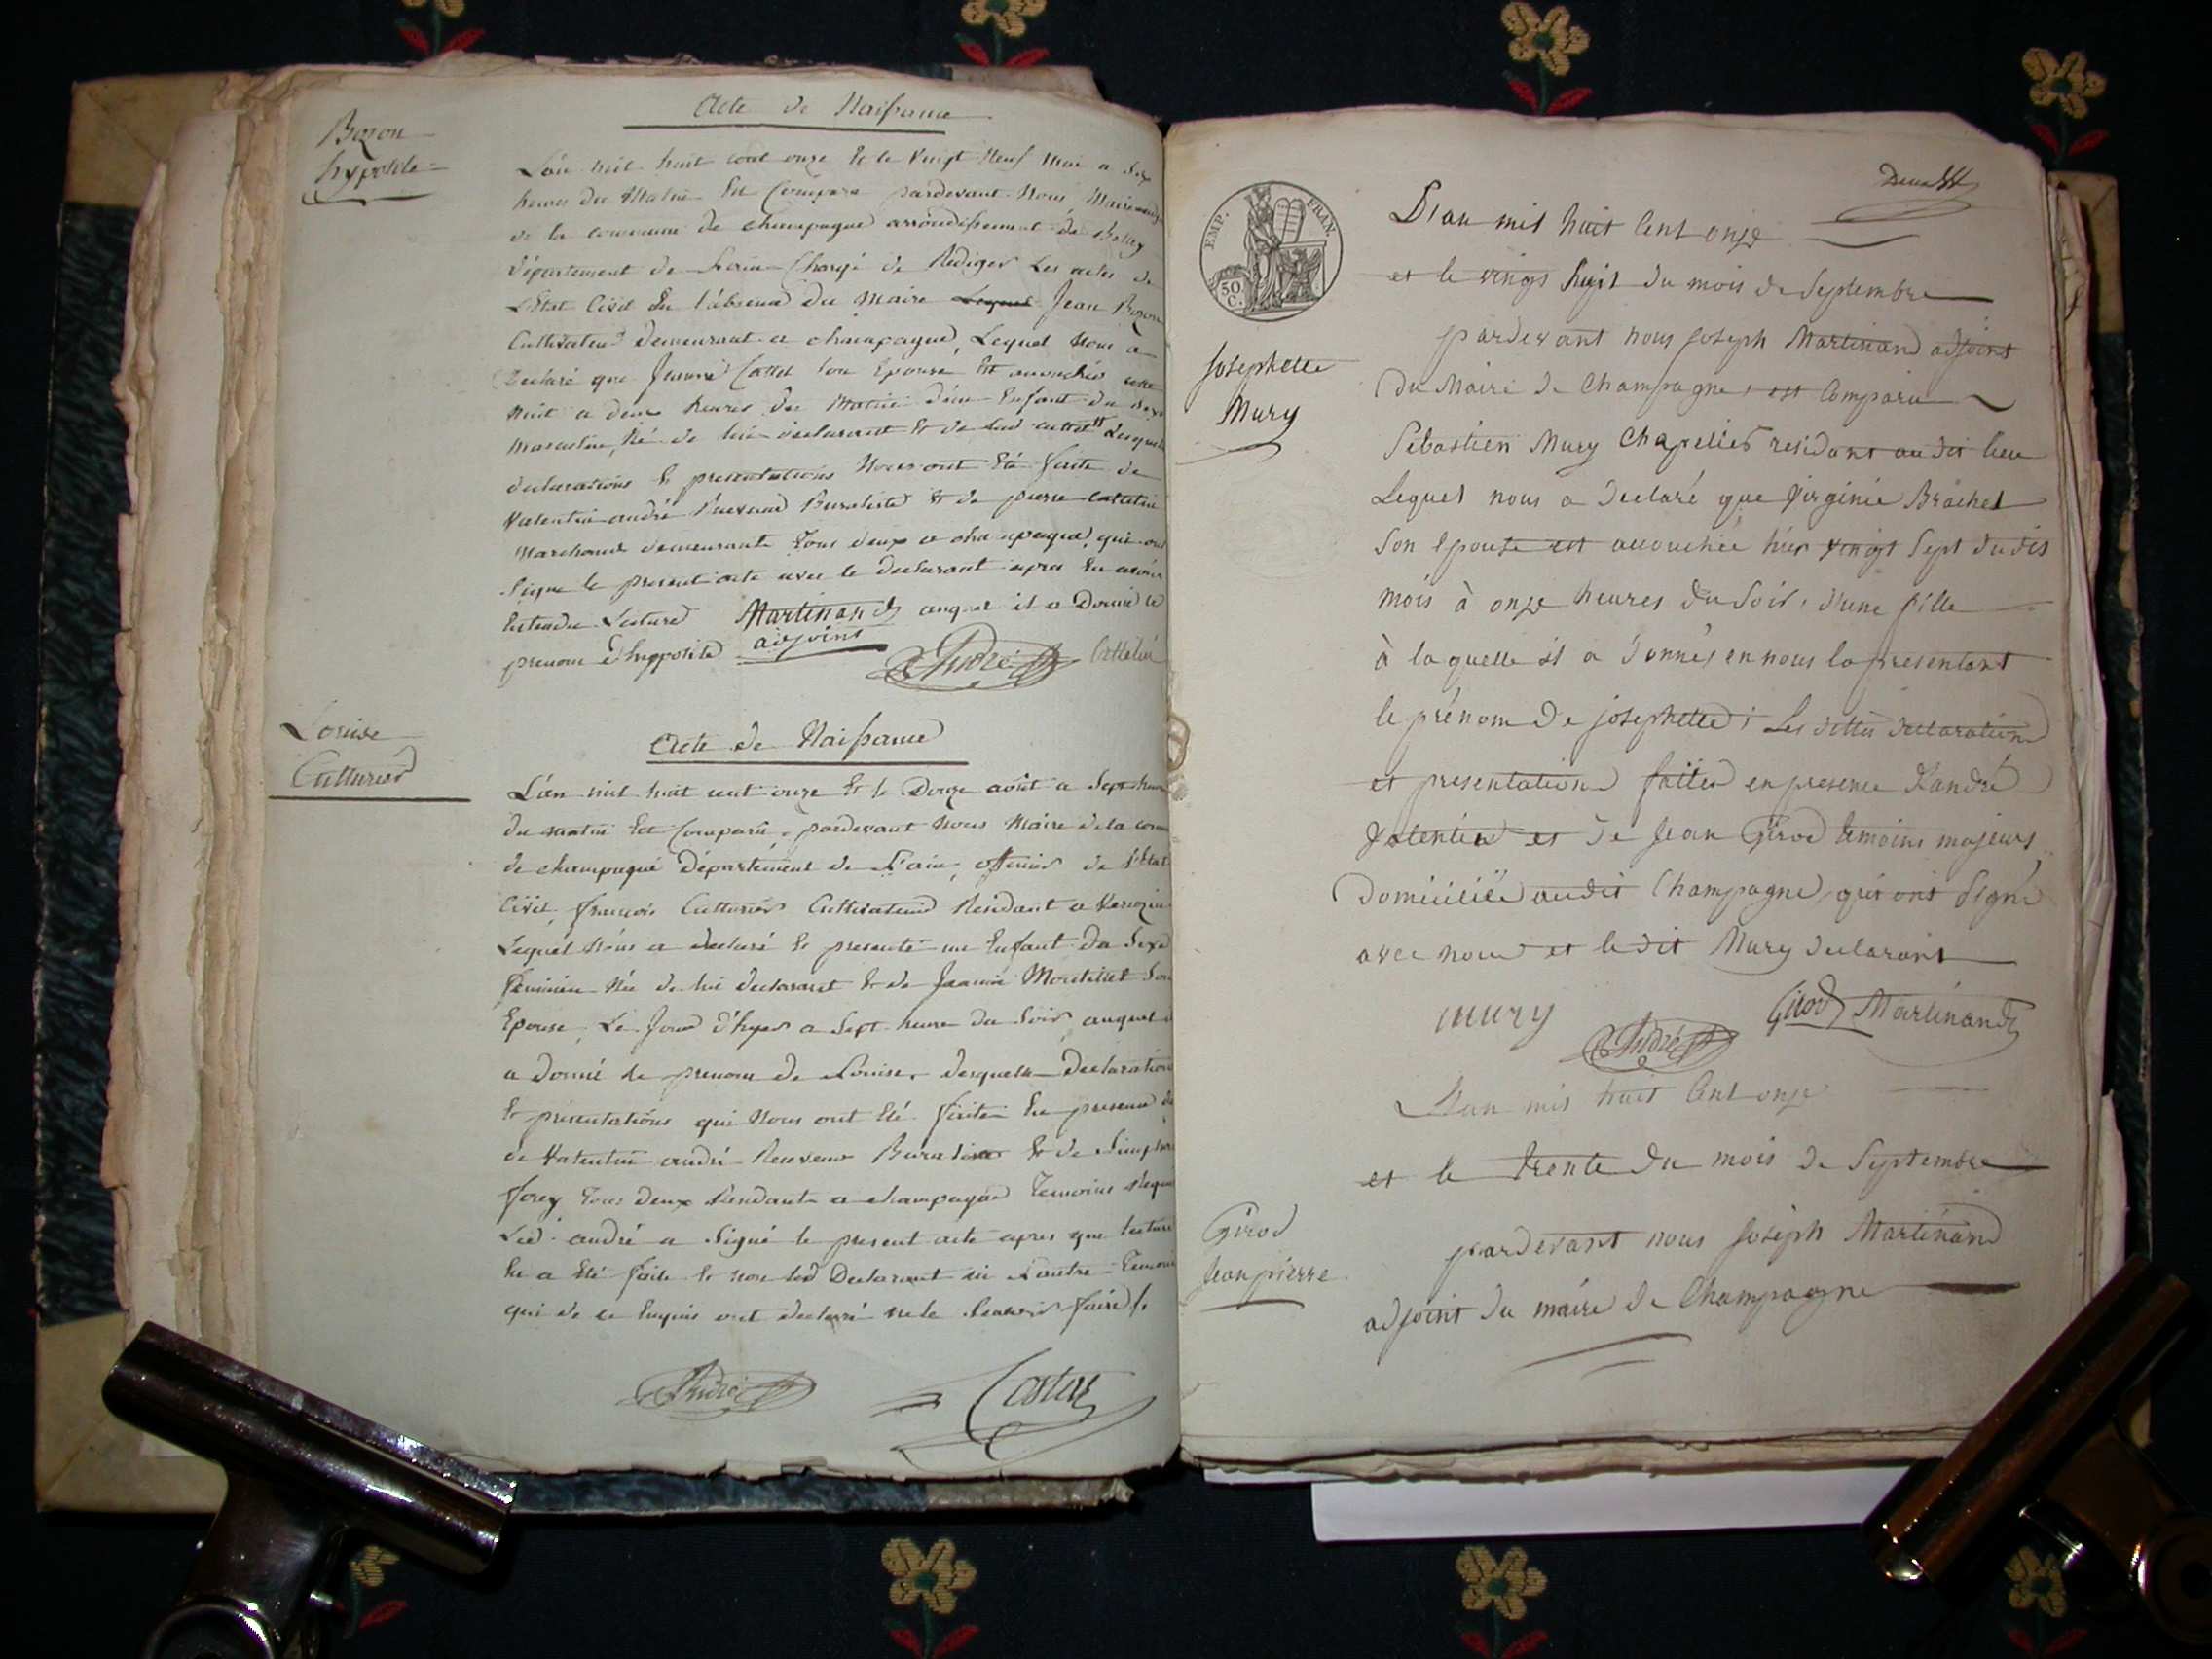 Acte de Naissance
Bozon
hypolite
L'an mil huit cent onze Et le Vingt Neuf Mai a Six
heures du Matin Est Comparu pardevant Nous Maire
de la commune de champagne arrondissement de Belley
département de L'ain Chargé de Rediger Les actes de
L'Etat Civil En l'absence du Maire Lequel Jean Bozon
Cultivateur demeurant a champagne, Lequel Nous a
Declaré que Jeanne Cattet Son Epouse Est accouchée cette
Nuit a deux heures du Matin d'un Enfant du Sexe
Masculin, Né de lui declarant & de Lad Cattet Lesquelles
declarations & presentations Nous ont Eté faite de
Valentin andré Receveur Buraliste & de pierre Cattelin
Marchand demeurants tous deux a champagne, qui ont
Signé le present acte avec le Declarant apres En avoir
Entendu Lecture Martinand auquel il a Donné le
prenom d'hyppolite adjoint André Cattelin
Louise
Cutturier
Acte de Naissance
L'an mil huit cent onze & le Douze août a Sept heure
du matin Est Comparû, pardevant Nous Maire de la com
de champagne Département de L'ain, officier de l'Etat
Civil, françois Cutturier Cultivateur Residant a
Lequel Nous a declaré & presenté un Enfant du Sexe
feminin Née de lui declarant & de Jeanne Montillet Son
Epouse, Le Jour d'hyer a Sept heure du Soir auquel il
a Donné le prenom de Louise, Desquelles Declaration
& présentations qui Nous ont Eté faites En presence
de Valentin andré Receveur Buraliste & de
forey tous deux Residants a champagne Temoins
Led. andré a Signé le present acte apres que lecture
En a Eté faite & non led Declarant ni L'autre Temoin
qui de ce Enquis ont declaré ne le Scavoir faire
André Costaz
EMP. FRAN.
50 C.
L'an mil huit Cent onze
et le vingt huit du mois de Septembre
pardevant nous Joseph Martinand adjoint
Josephette
Mury
du Maire de Champagne, est Comparu
Sébastien Mury Chapelier residant audit lieu
Lequel nous a declaré que Virginie Brachet
Son Epouse est accouchée hier vingt Sept dudit
mois à onze heures du Soir, d'une fille
à laquelle il a donné, en nous la presentant
le prénom de josephette; Les dittes declaration
et presentation faites en presence d'andré
Valentin et de Jean Girod temoins majeurs
Domiciliés audit Champagne, qui ont Signé
avec nous et ledit Mury declarant
mury André Girod Martinand
L'an mil huit Cent onze
et le trente du mois de Septembre
Girod
Jean pierre
pardevant nous Joseph Martinand
adjoint du maire de Champagne